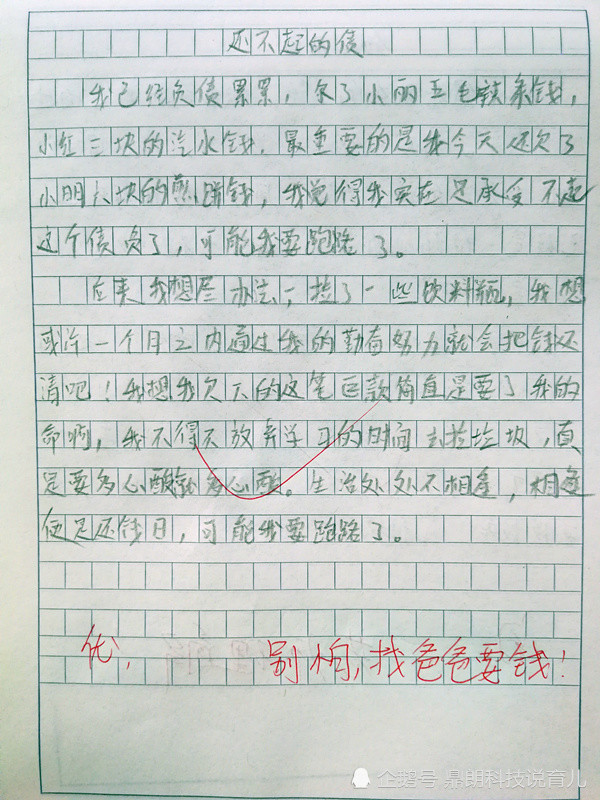 还不起的债
我已经负债累累，欠了小丽五毛辣条钱，
小红三块的汽水钱，最重要的是我今天还欠了
小明六块的煎饼钱，我觉得我实在是承受不起
这个债负了，可能我要跑路了。
后来我想尽办法，捡了一些饮料瓶，我想
或许一个月之内通过我的勤奋努力就会把钱还
清吧！我想我欠下的这笔巨款简直是要了我的
命啊，我不得不放弃学习的时间去捡垃圾，真
是要多心酸就多心酸。生活处处不相逢，相逢
便是还钱日，可能我要跑路了。
优，
别怕，找爸爸要钱！
企鹅号 鼎朗科技说育儿